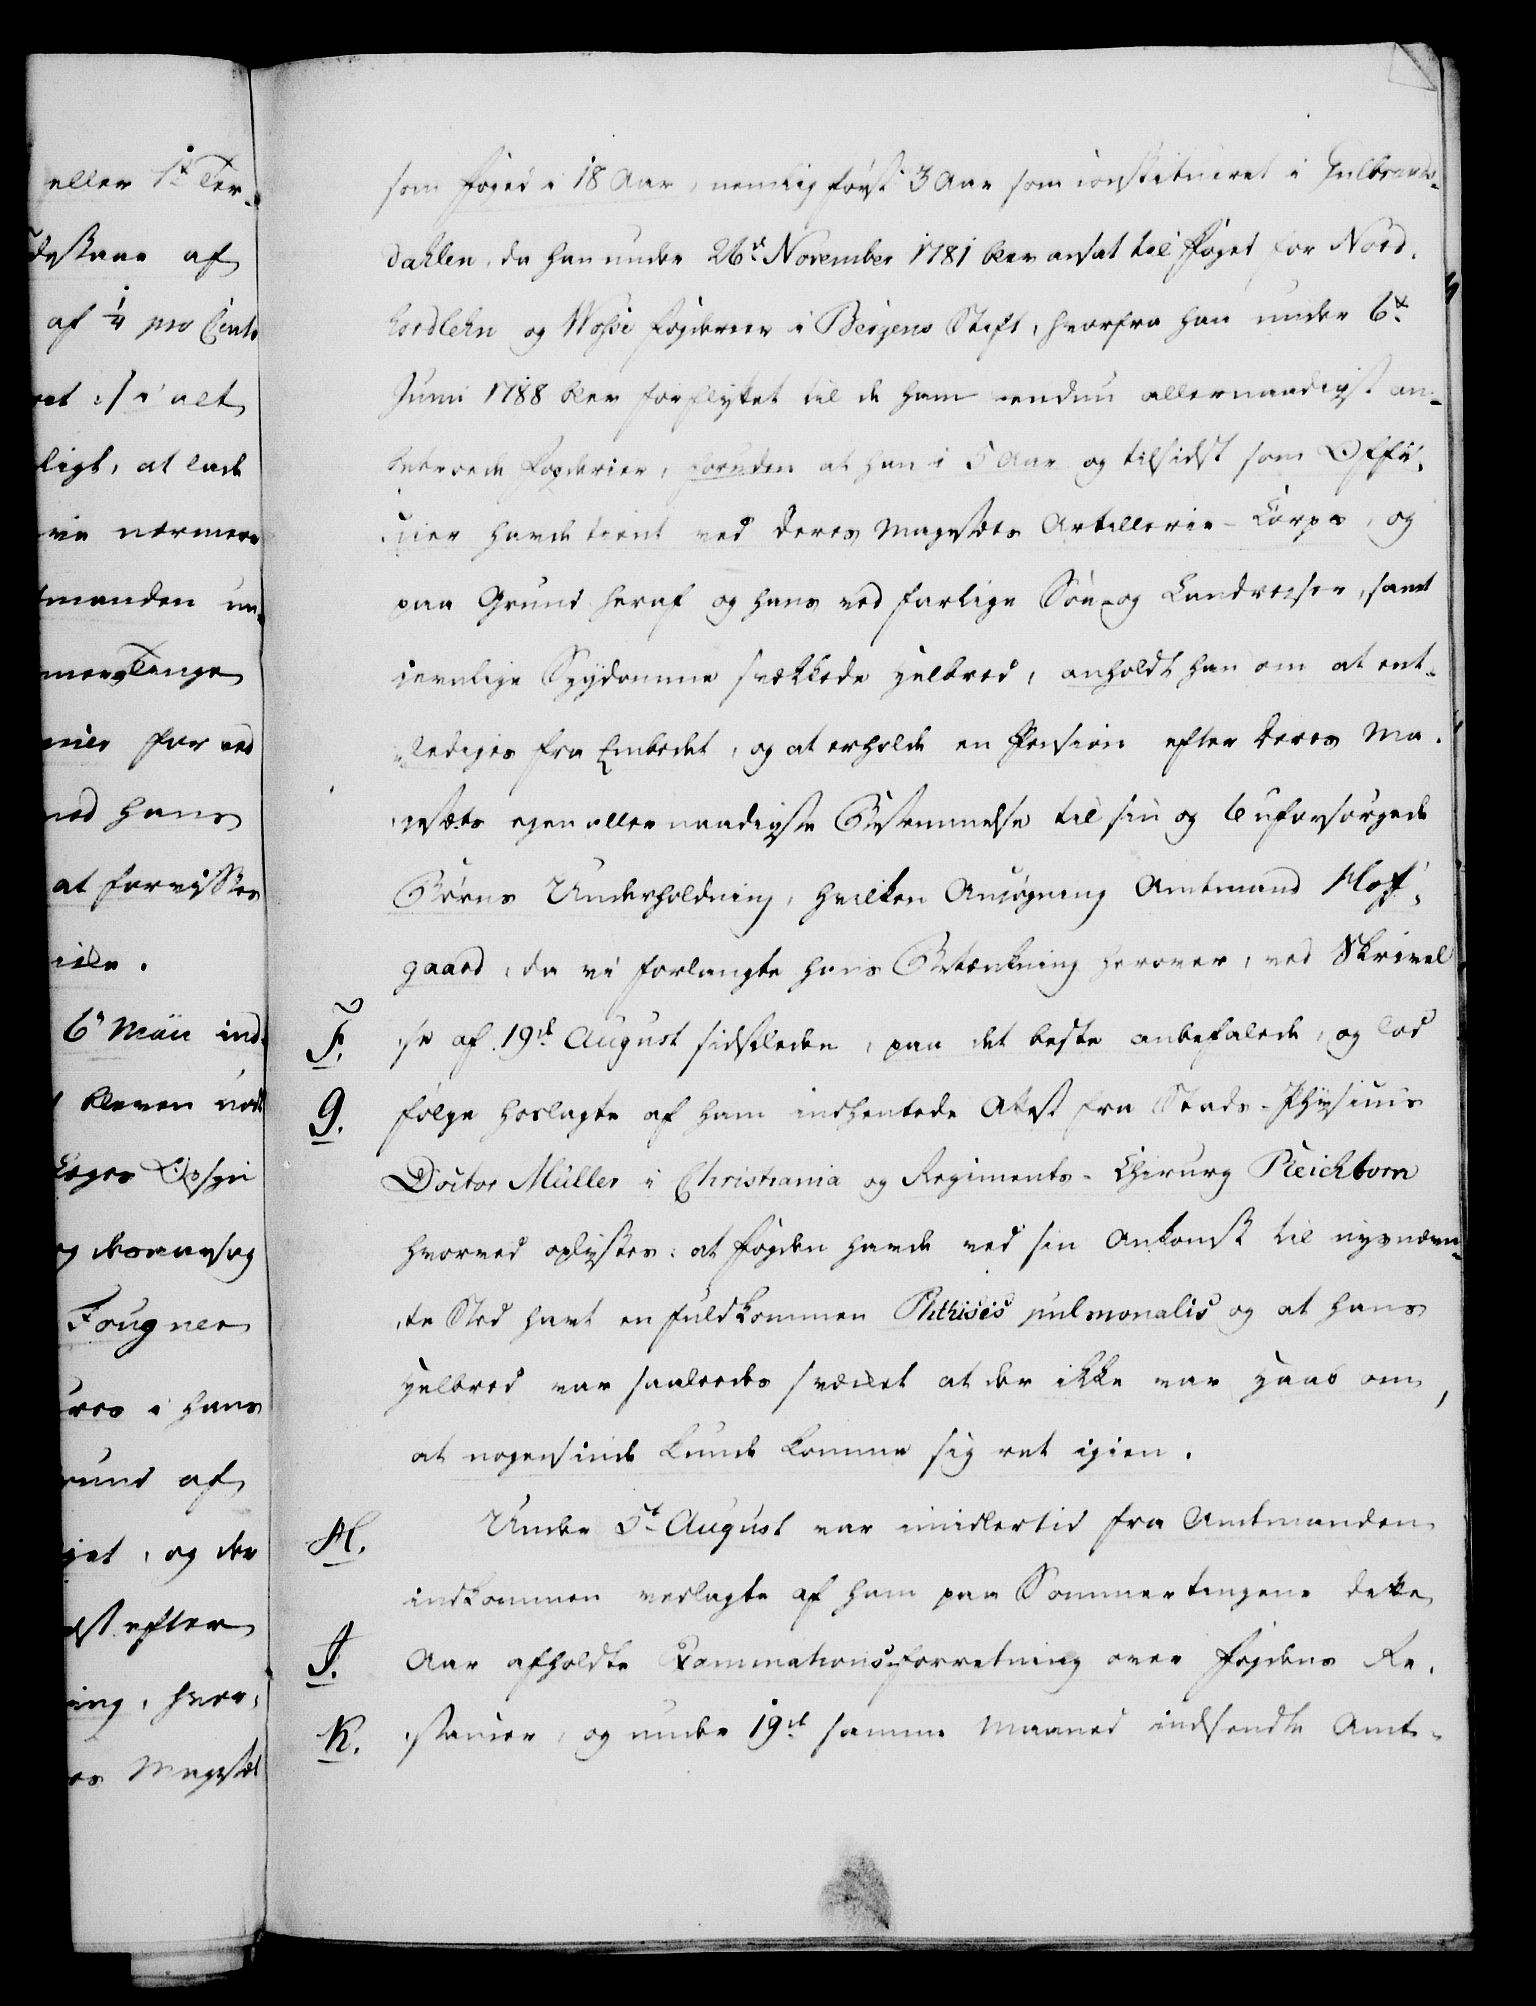 eller 1ste Ter-
af
af 1/4 pro Cento
ret :/ i alt
ligt, at lade
nærmere
manden un-
Tinge
for ved
med hans
at forvisses
6te Maii ind-
bleven
Fougner
i hans
Grund af
og der
efter
ing, hvor-
Majestæt
som Foged i 18 Aar, nemlig først 3 Aar som constitueret i Gulbrands-
dahlen, da han under 26de November 1781 blev ansat til Foged for Nord-
hordlehn og Wosse Fogderier i Bergens Stift, hvorfra han under 6te
Junii 1788 blev forflyttet til de ham endnu allernaadigst an-
betroede Fogderier, foruden at han i 5 Aar og tilsidst som Offi-
cier havde tient ved Deres Majestæts Artillerie-Corps, og
paa Grund heraf og hans ved farlige Søe- og Landreiser, samt
jevnlige Sygdomme svækkede Helbred, anholdt han om at ent-
lediges fra Embedet, og at erholde en Pension efter Deres Ma-
jestæts egen allernaadigste Bestemmelse til sin og 6 uforsørgede
Børns Underholdning, hvilken Ansøgning Amtmand Hoff-
gaard, da vi forlangte hans Betænkning herover, ved Skrivel-
F. se af 19de August sidstleden, paa det beste anbefalede, og lod
G. følge hoslagte af ham indhentede Attest fra Stads-Physicus
Doctor Müller i Christiania og Regiments-Chirurg Reichborn
hvorved oplystes: at Fogden havde ved sin Ankomst til nysnævn-
te Sted havt en fuldkommen Phthisis pulmonalis og at hans
Helbred var saaledes svækket at der ikke var Haab om,
at nogensinde kunde komme sig ret igien.
H. Under 5te August var imidlertid fra Amtmanden
indkommen vedlagte af ham paa Sommertingene dette
I. Aar afholdte Examinationsforretning over Fogdens Re-
K. stancer, og under 19de samme Maaned indsendte Amt-